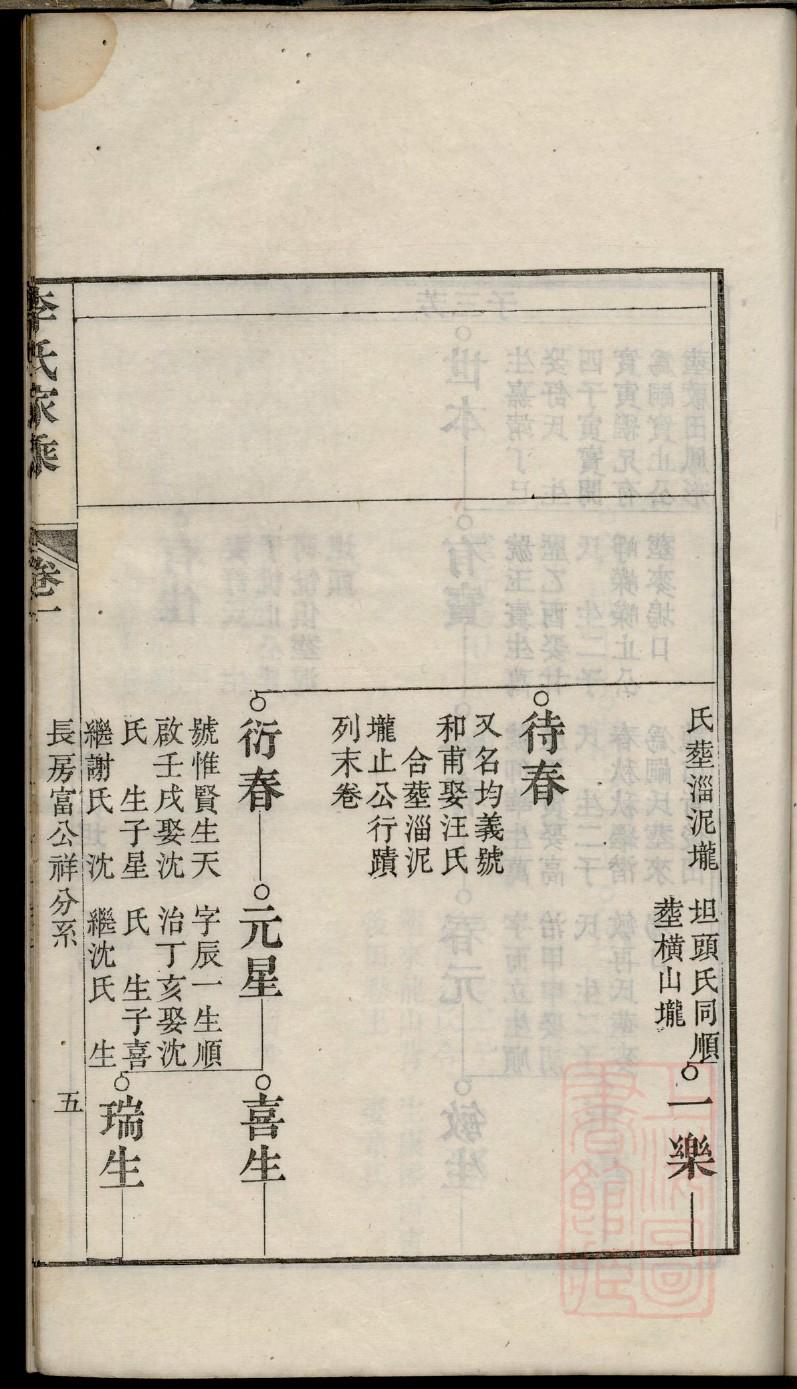 氏塟淄泥壠
坦頭氏同順
塟橫山壠
一樂
待春
又名均義號
和甫娶汪氏
合塟淄泥
壠止公行蹟
列末卷
衍春
號惟賢生天
啟壬戌娶沈
氏 生子星
繼謝氏 沈
元星
字辰一生順
治丁亥娶沈
氏 生子喜
繼沈氏 生
喜生
瑞生
長房富公祥分系
五
李氏家乘
卷一